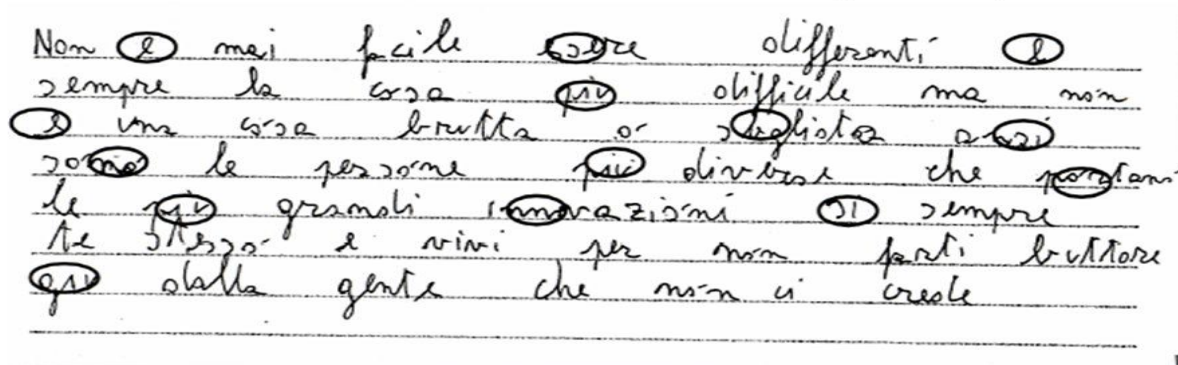 Non e mai facile essere differenti e
sempre la cosa piu difficile ma non
e una cosa brutta o sbagliata anzi
sono le persone piu diverse che portano
le piu grandi innovazioni si sempre
te stesso e vivi per non farti buttare
giu dalla gente che non ci crede